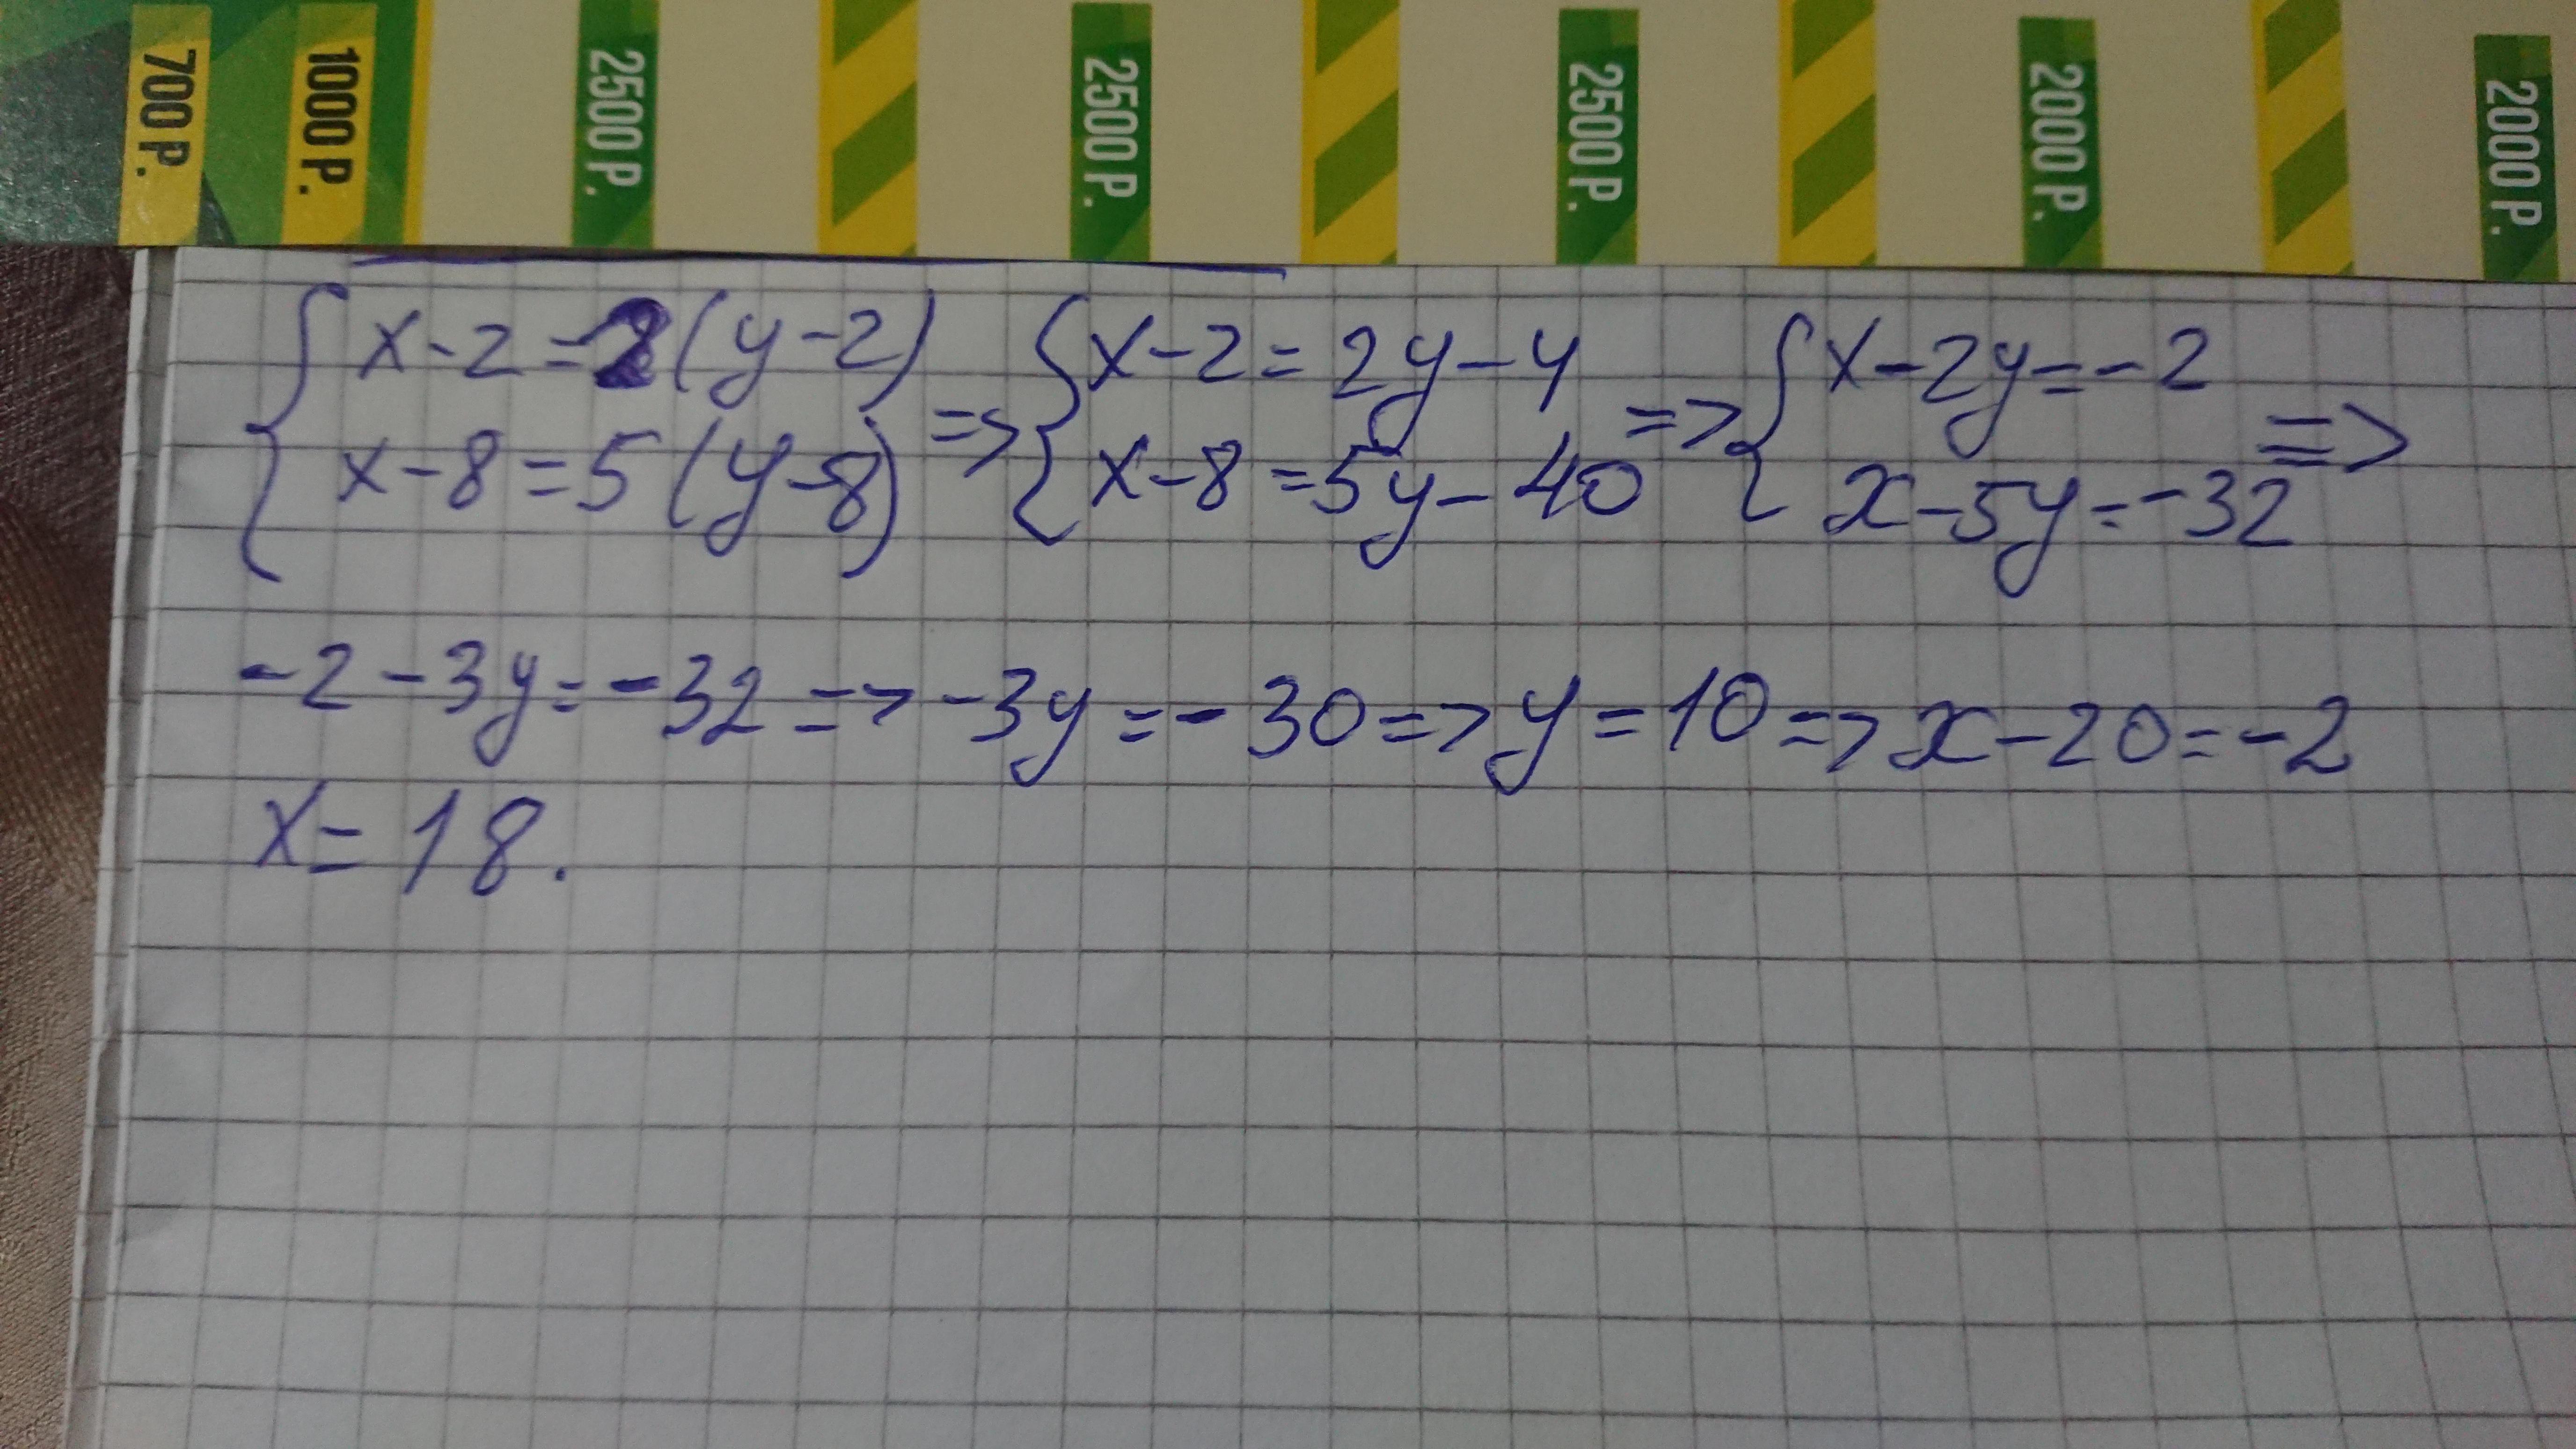 700 Р. 1000 Р. 2500 Р. 2500 Р. 2500 Р. 2000 Р. 2000 Р.
{ x-2=2(y-2) => { x-2=2y-4 => { x-2y=-2 =>
x-8=5(y-8) x-8=5y-40 x-5y=-32
-2-3y=-32 => -3y=-30 => y=10 => x-20=-2
x=18.